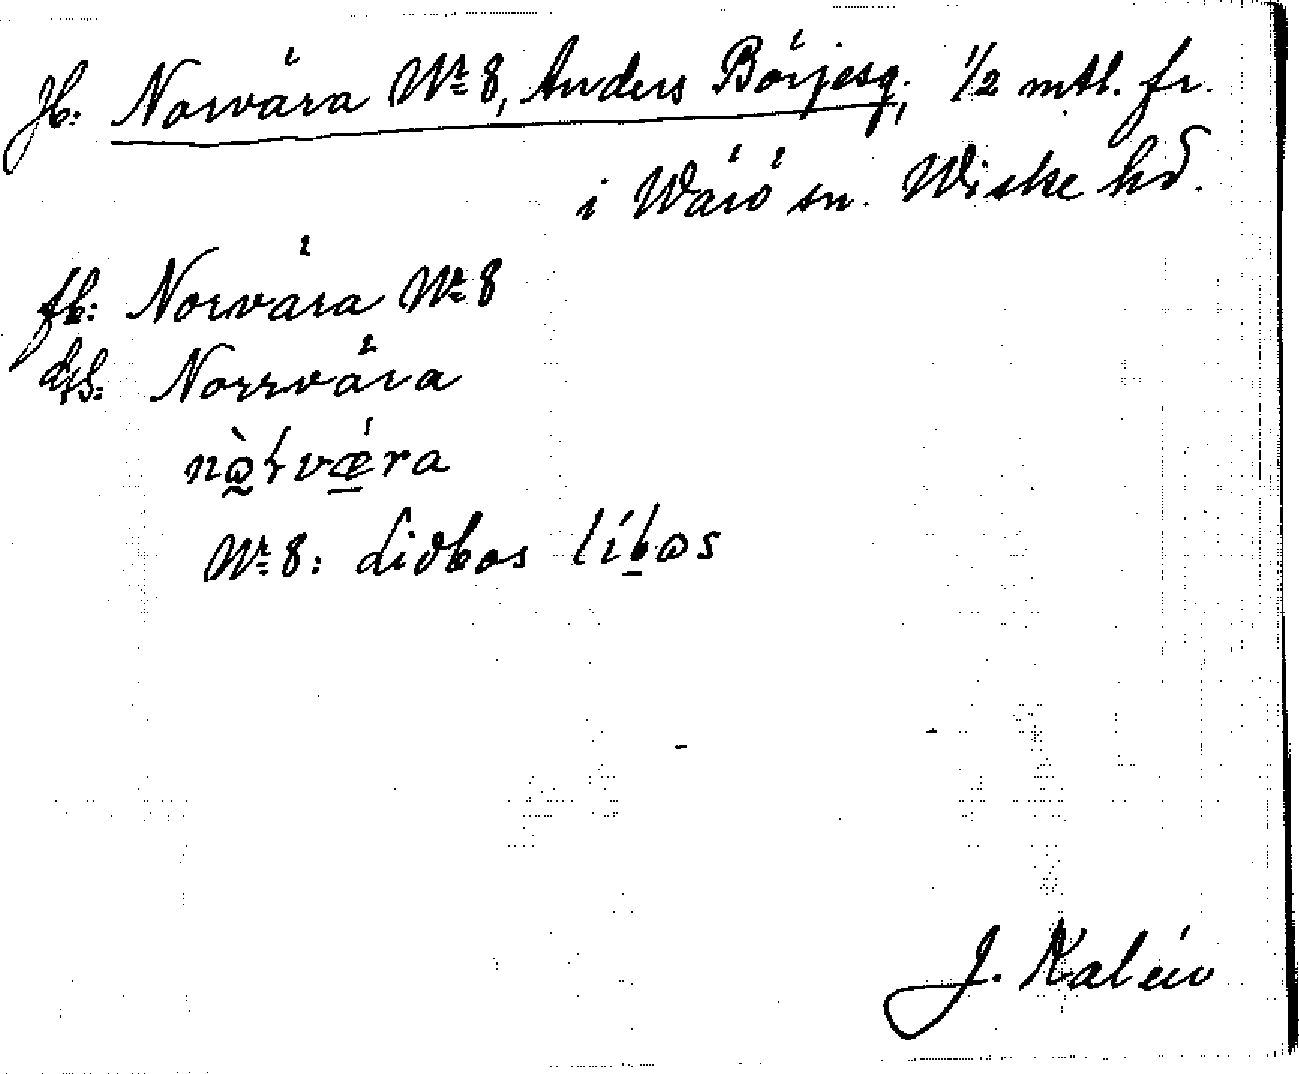 Jb: Norvära Nr 8, Anders Börjesg., 1/2 mtl. fr.
i Wärö sn. Wiske hd.
fb: Norvära Nr 8
dfb: Norrvära
Nr 8: Lidbos líbɷs
J. Kalén